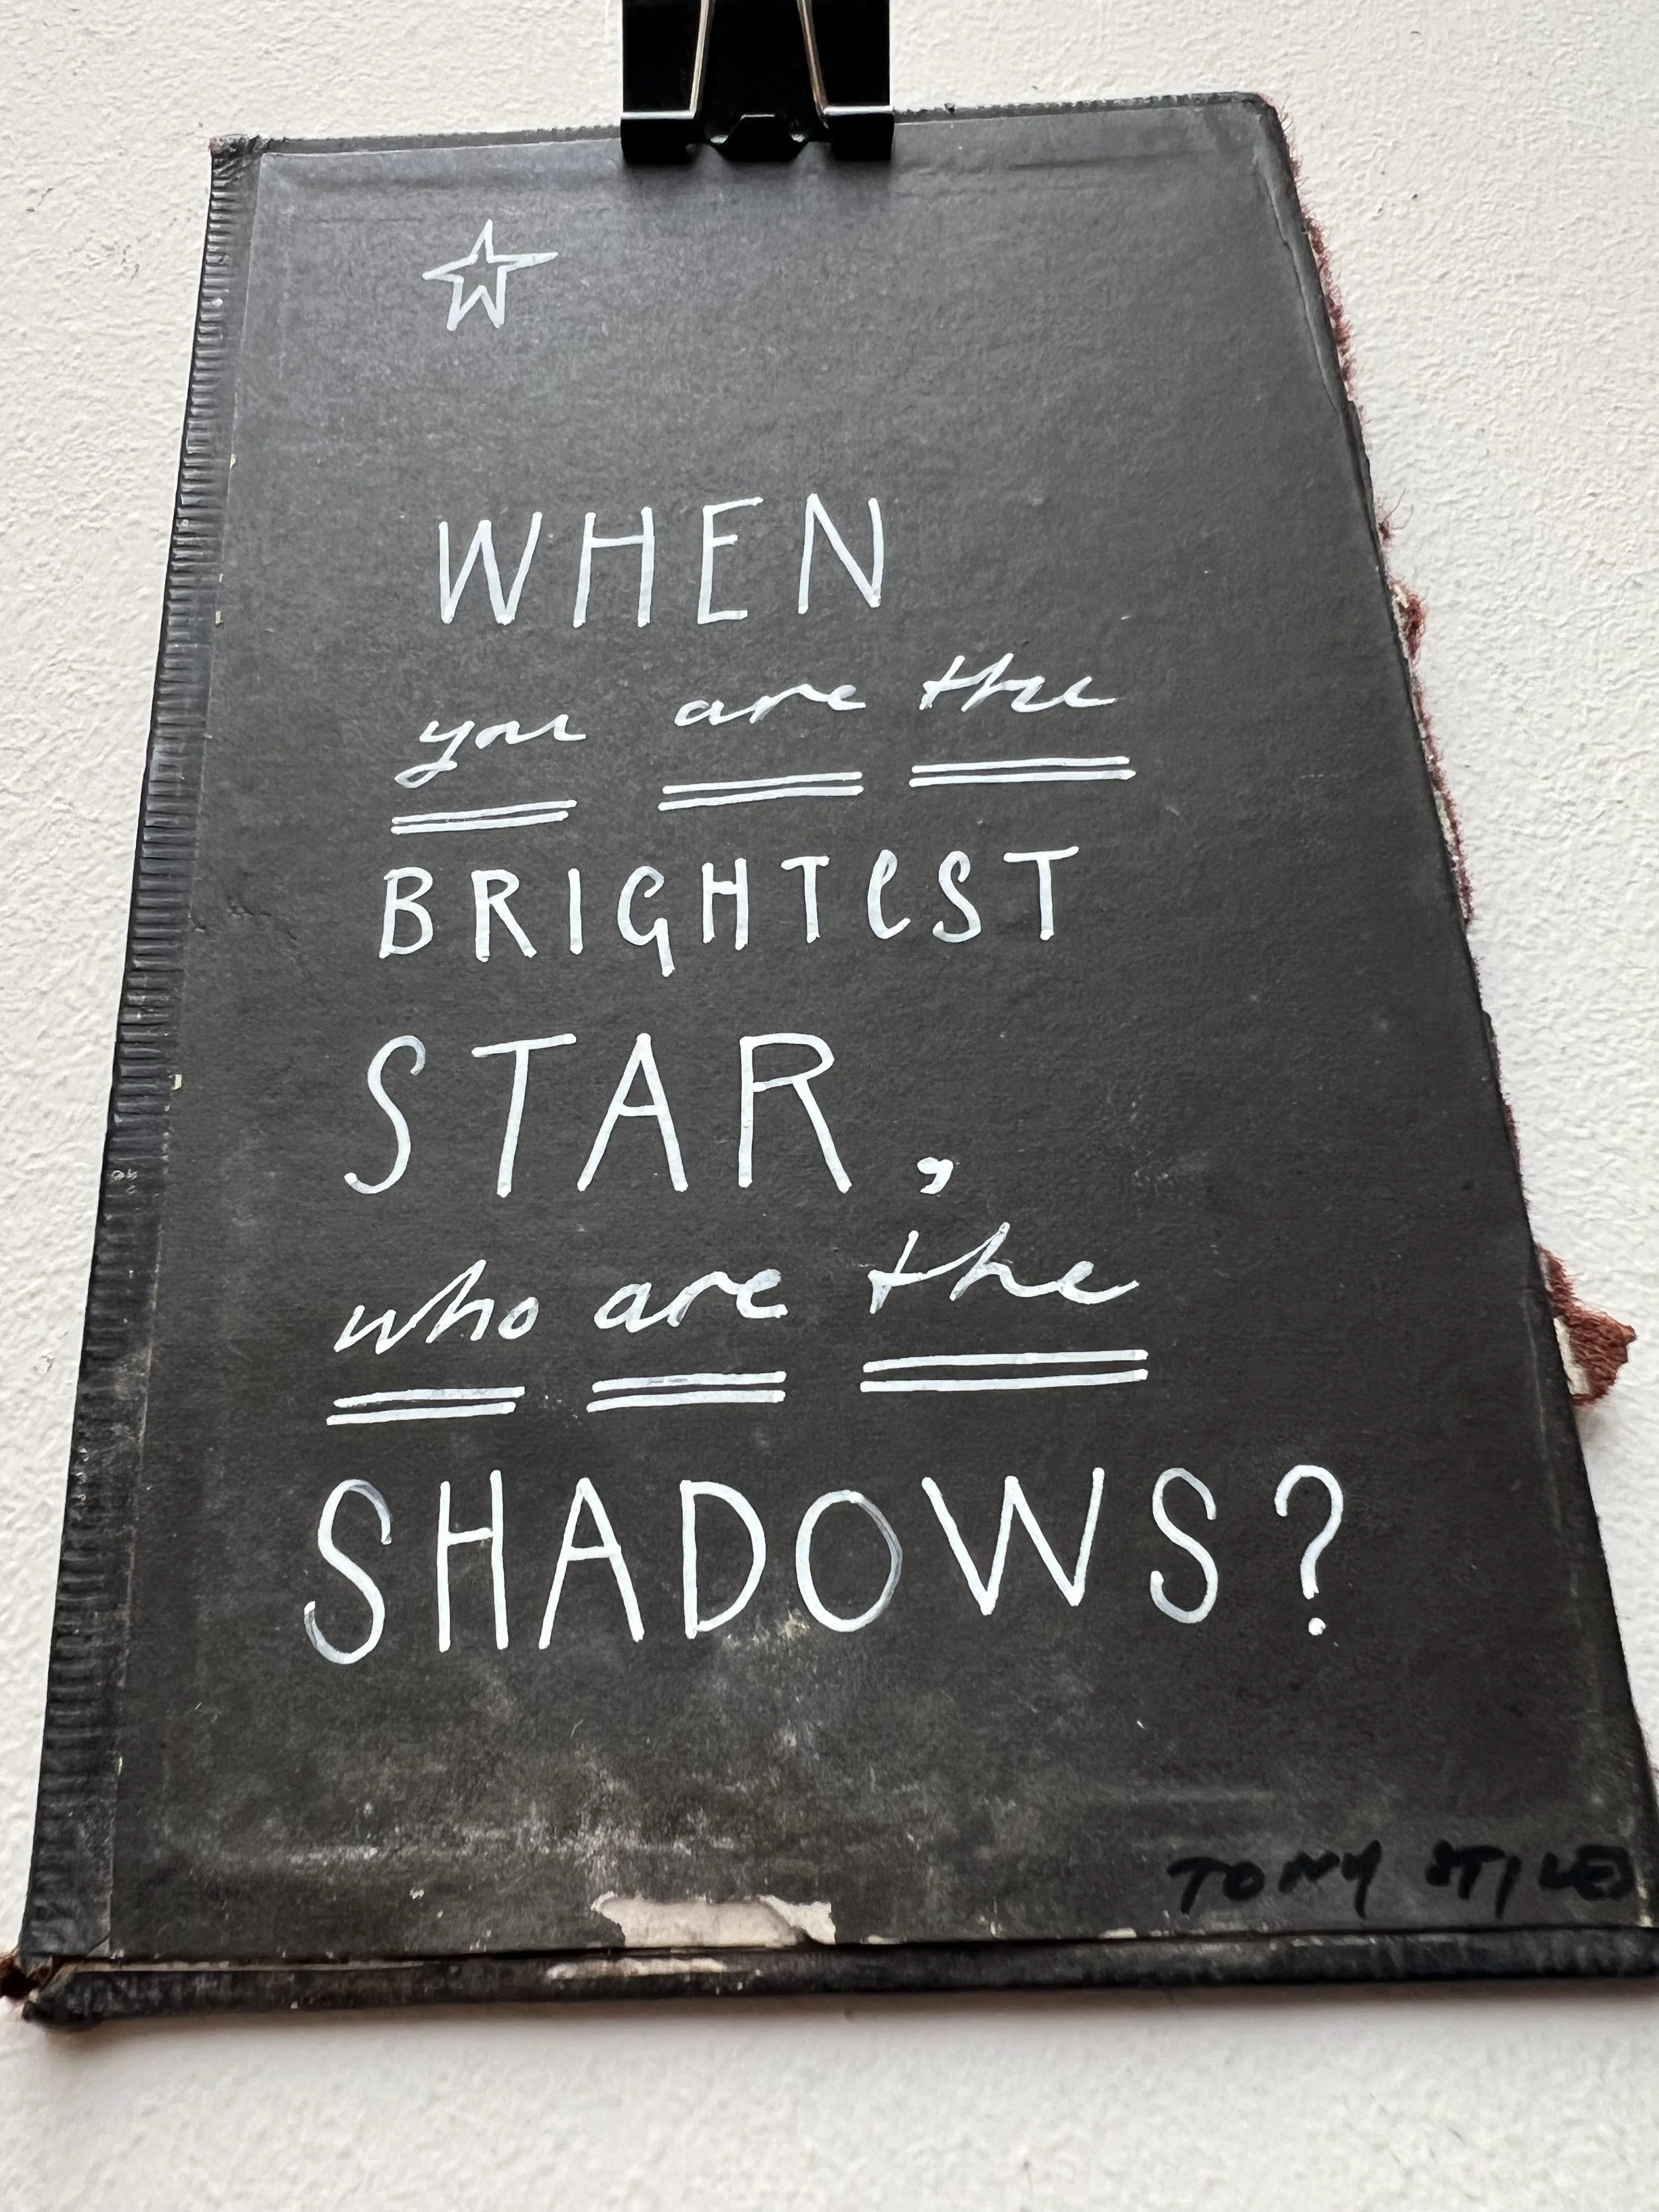 WHEN
you are the
BRIGHTeST
STAR,
who are the
SHADOWS?
TONY STILES